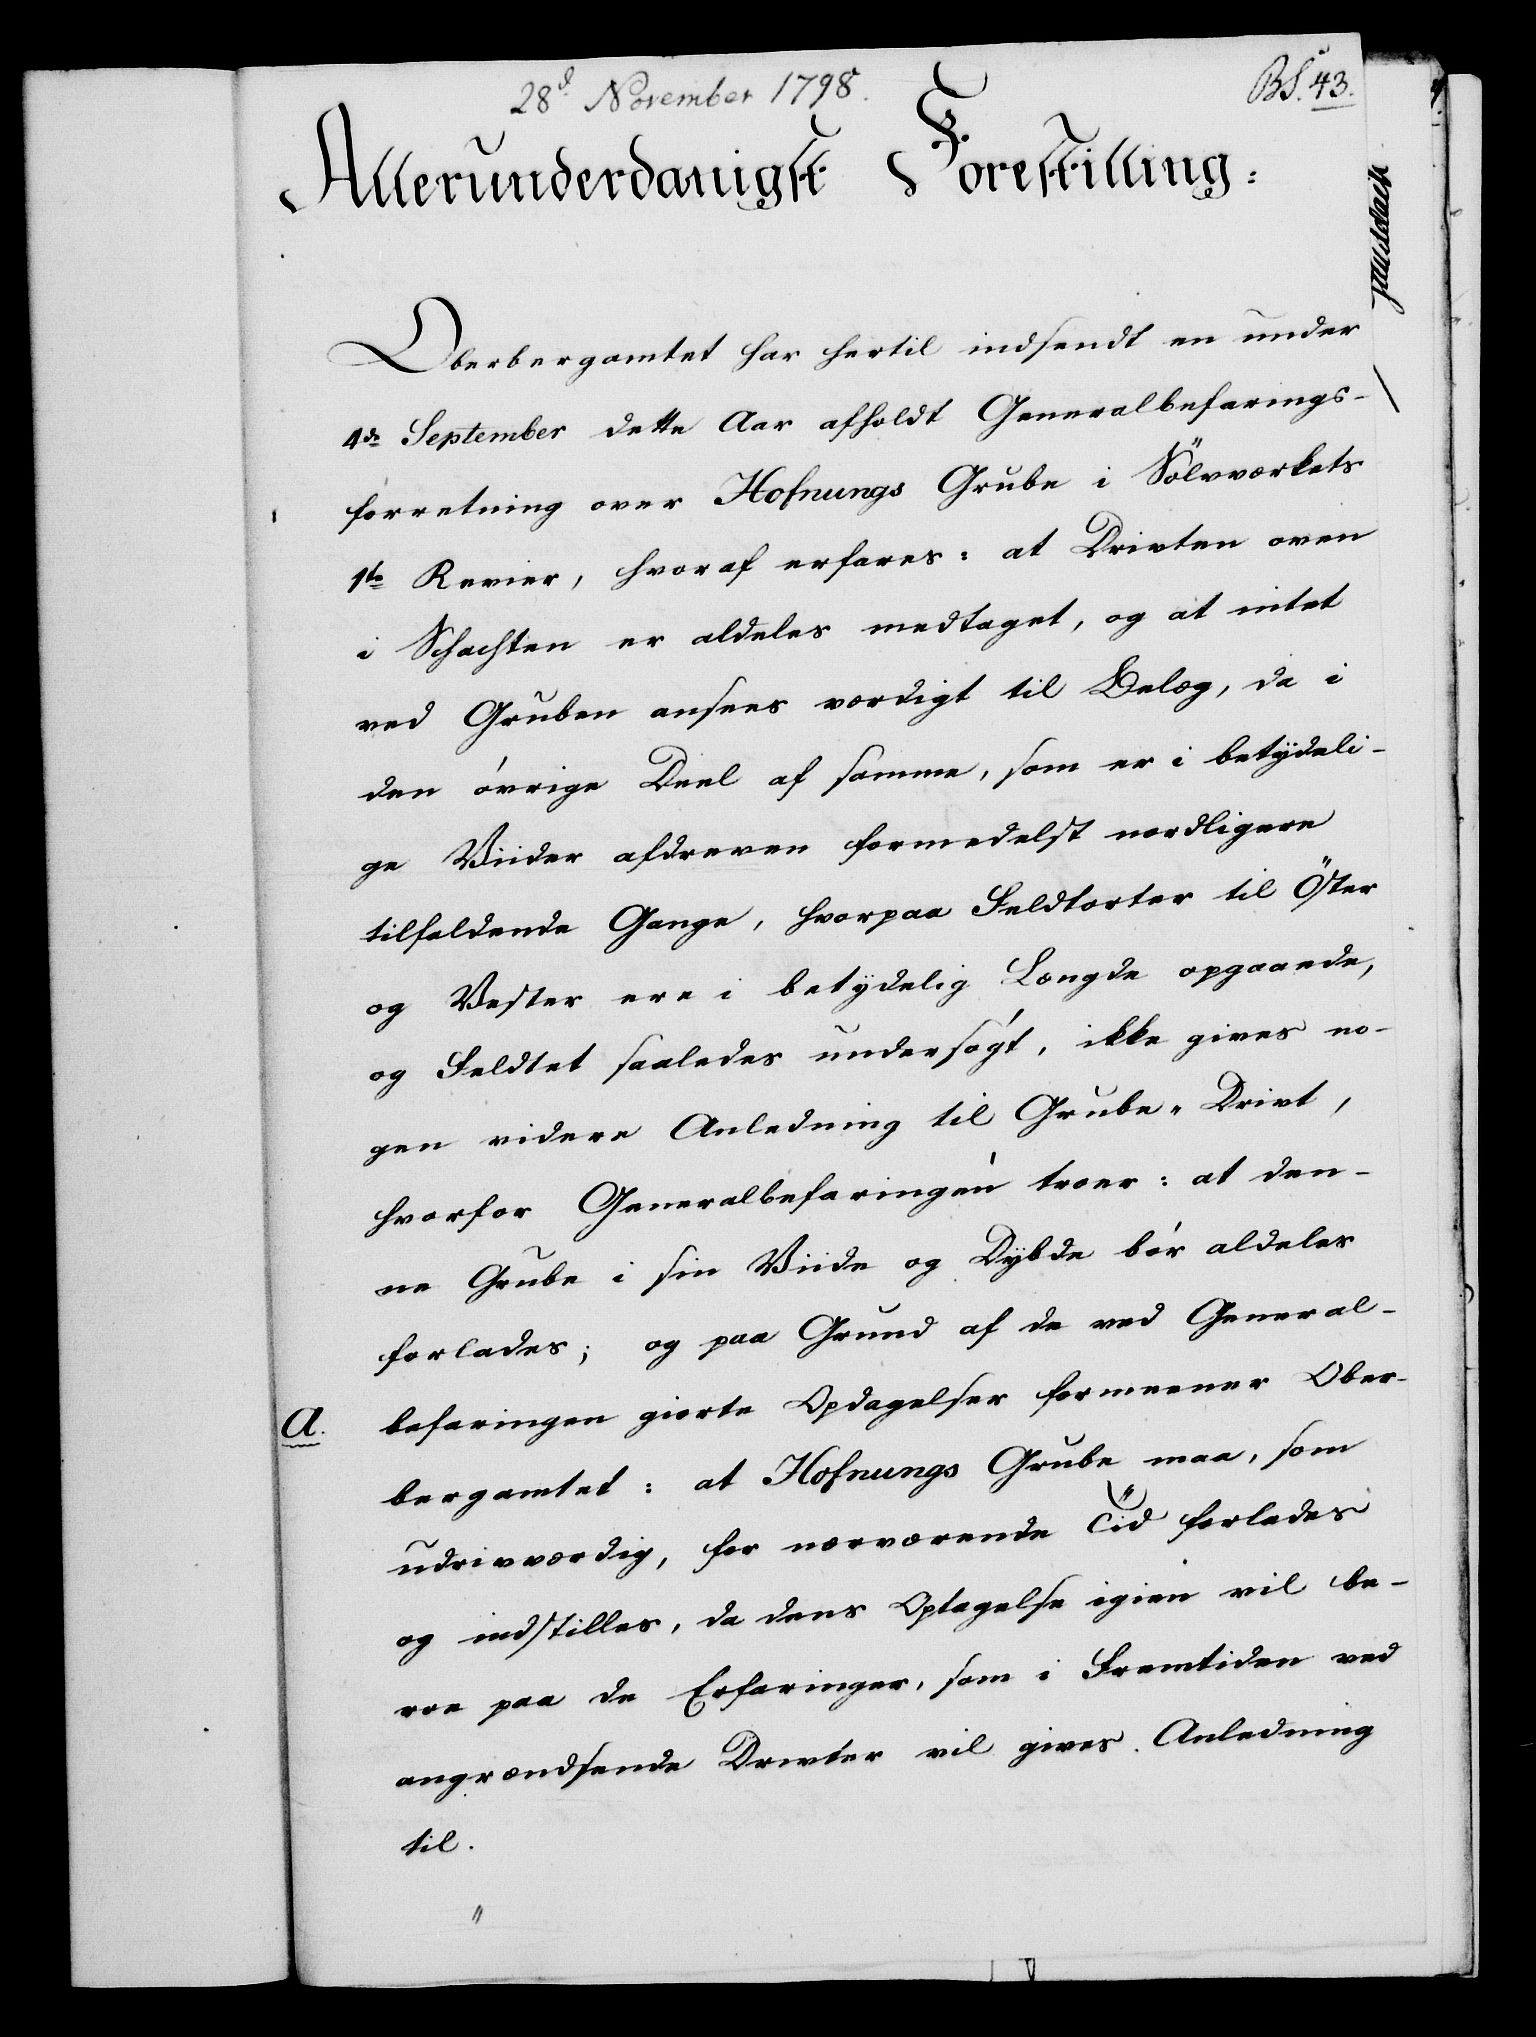 28d November 1798.
BS. 43.
Allerunderdanigst Forestilling:
Oberbergamtet har hertil indsendt en under
4de September dette Aar afholdt Generalbefarings-
forretning over Hofnungs Grube i Sölvværkets
1te Revier, hvoraf erfares: at Drivten oven
i Schachten er aldeles medtaget, og at intet
ved Gruben ansees værdigt til Belæg, da i
den övrige Deel af samme, som er i betÿdeli-
ge Viider afdreven formedelst nordligere
tilfaldende Gange, hvorpaa Feldtorter til Öster
og Vester ere i betÿdelig Længde opgaaede,
og Feldtet saaledes undersögt, ikke gives no-
gen videre Anledning til Grube-Drivt,
hvorfor Generalbefaringen troer: at den-
ne Grube i sin Viide og Dÿbde bör aldeles
forlades; og paa Grund af de ved General-
a. befaringen giorte Opdagelser formeener Ober-
bergamtet: at Hofnungs Grube maa, som
udrivværdig, for nærværende Tiid forlades
og indstilles, da dens Optagelse igien vil be-
roe paa de Erfaringer, som i Fremtiden ved
angrændsende Drivter vil gives Anledning
til.